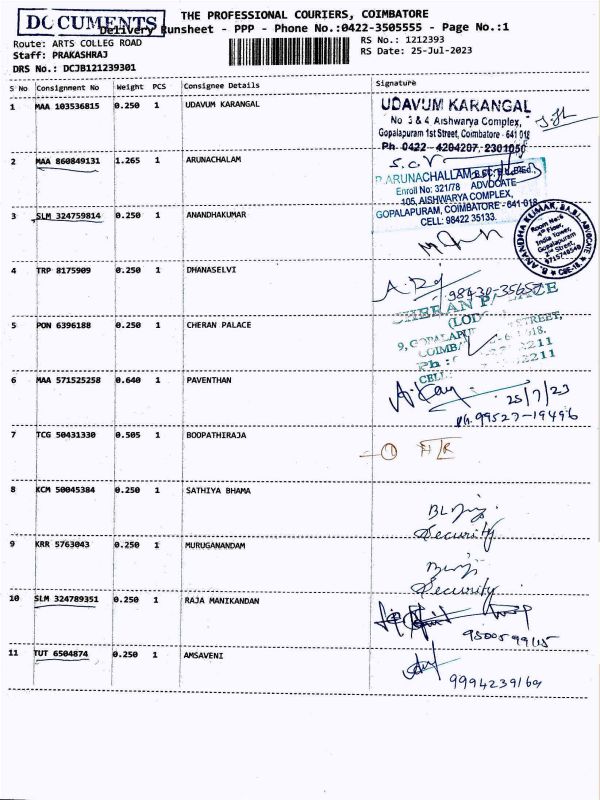 DOCUMENTS
THE PROFESSIONAL COURIERS, COIMBATORE
Delivery Runsheet - PPP - Phone No.:0422-3505555 - Page No.:1
Route: ARTS COLLEG ROAD
RS No.: 1212393
Staff: PRAKASHRAJ
RS Date: 25-Jul-2023
DRS No.: DCJB121239301
S No Consignment No Weight PCS Consignee Details Signature
1 MAA 103536815 0.250 1 UDAVUM KARANGAL
UDAVUM KARANGAL
No 3 & 4 Aishwarya Complex,
Gopalapuram 1st Street, Coimbatore - 641 018
Ph 0422 - 4204207, 2301050
2 MAA 860849131 1.265 1 ARUNACHALAM
P.ARUNACHALLAM
Enroll No: 321/78 ADVOCATE
105, AISHWARYA COMPLEX,
GOPALAPURAM, COIMBATORE - 641 018
CELL: 98422 35133.
3 SLM 324759814 0.250 1 ANANDHAKUMAR
B. ANANDHA KUMAR, BA.BL, ADVOCATE
Room No:6
4th Floor,
India Tower,
Gopalapuram
2nd Street,
9715748540
CBE-18.
4 TRP 8175909 0.250 1 DHANASELVI
98430-35657
5 PON 6396188 0.250 1 CHERAN PALACE
CHERAN
STREET,
2211
CELL:
6 MAA 571525258 0.640 1 PAVENTHAN
25/7/23
Ph. 99527-19496
7 TCG 50431330 0.505 1 BOOPATHIRAJA
8 KCM 50045384 0.250 1 SATHIYA BHAMA
Security
9 KRR 5763043 0.250 1 MURUGANANDAM
Security
10 SLM 324789351 0.250 1 RAJA MANIKANDAN
11 TUT 6504874 0.250 1 AMSAVENI